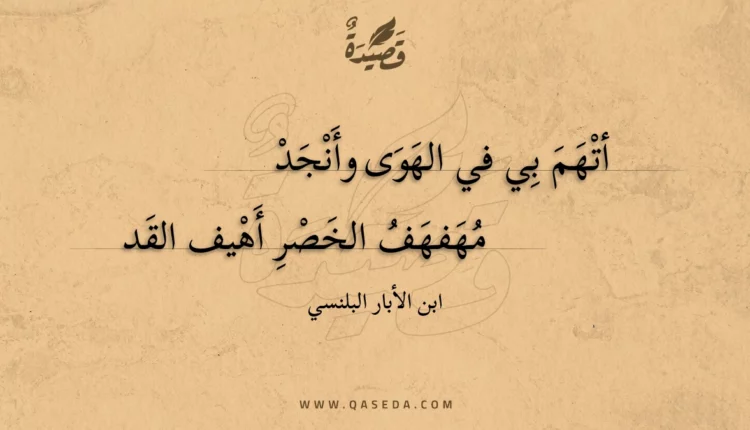 قَصِيْدَةٌ
أتْهَمَ بِي في الهَوَى وأَنْجَدْ
مُهَفهَفُ الخَصْرِ أَهْيف القَد
ابن الأبار البلنسي
WWW.QASEDA.COM